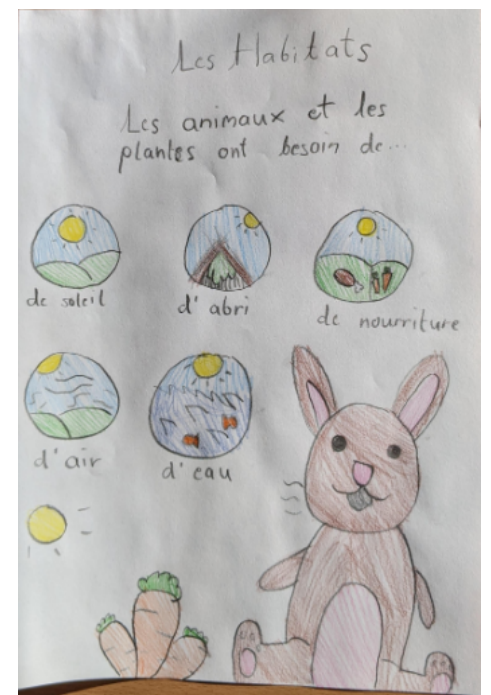 Les Habitats
Les animaux et les
plantes ont besoin de...
de soleil
d'abri
de nourriture
d'air
d'eau